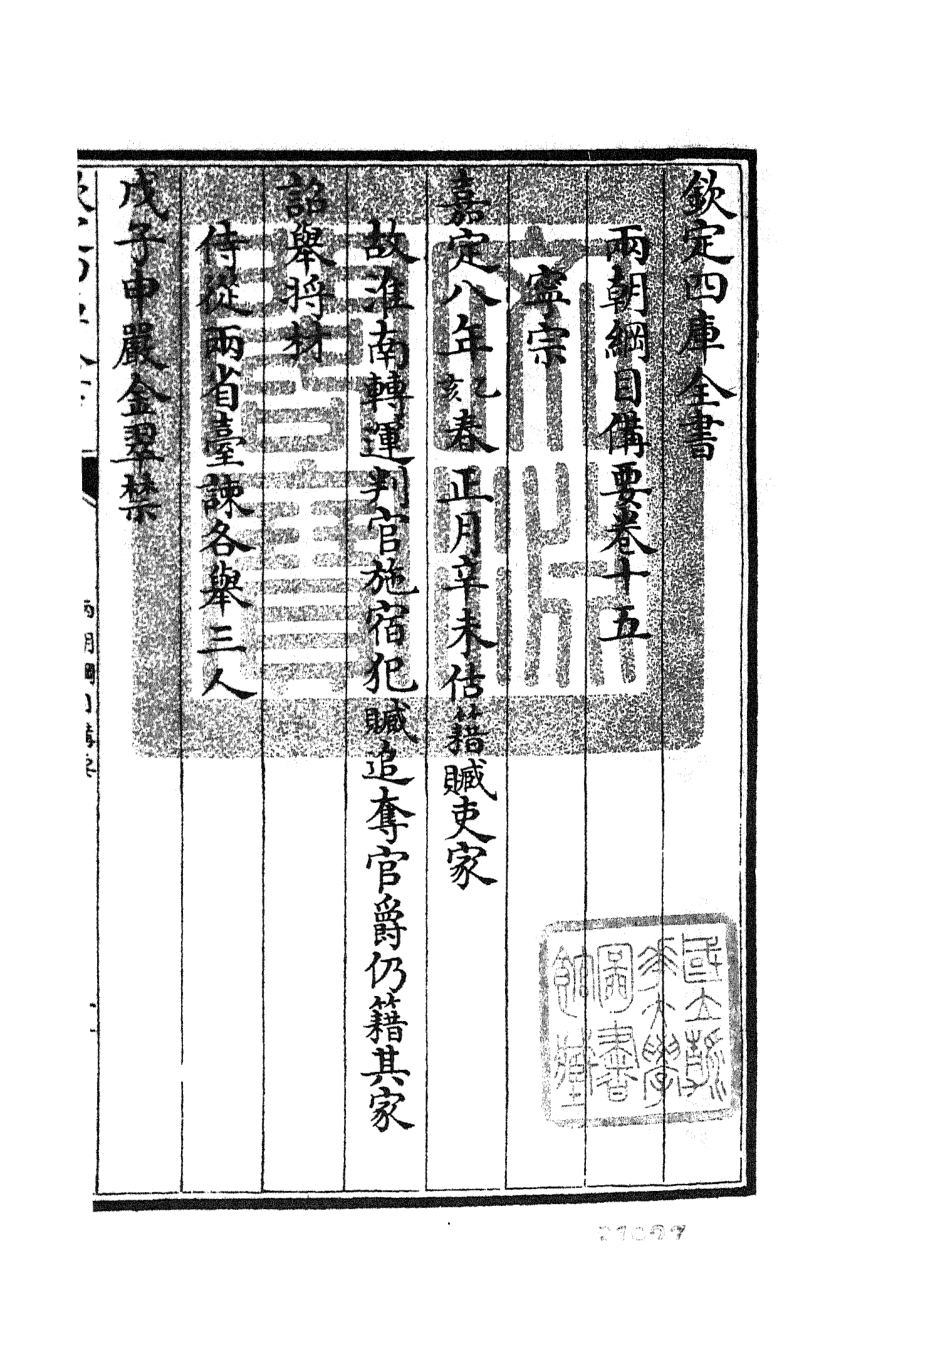 欽定四庫全書
兩朝綱目備要卷十五
寧宗
嘉定八年乙亥春正月辛未估籍贓吏家
故淮南轉運判官施宿犯贓追奪官爵仍籍其家
詔舉將材
侍從兩省臺諫各舉三人
戊子申嚴金翠禁